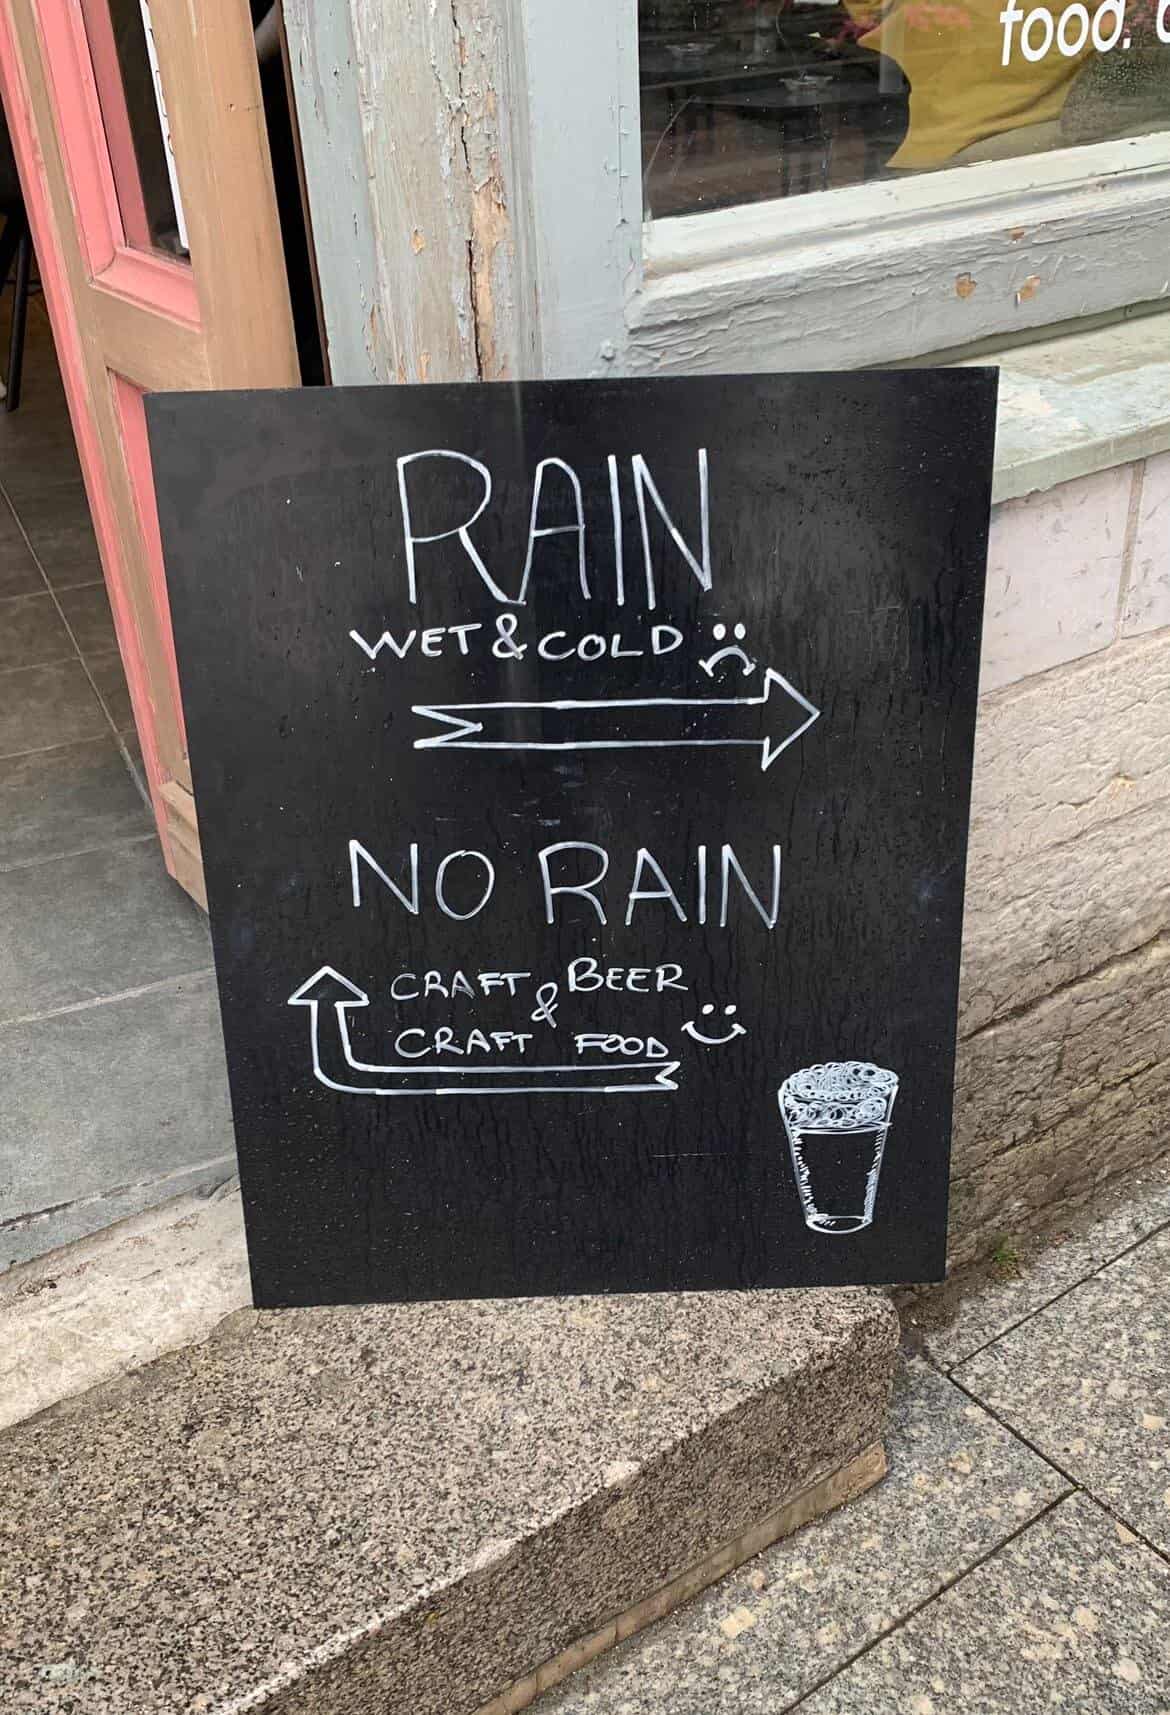 food.
RAIN
WET & COLD
NO RAIN
CRAFT & BEER
CRAFT FOOD